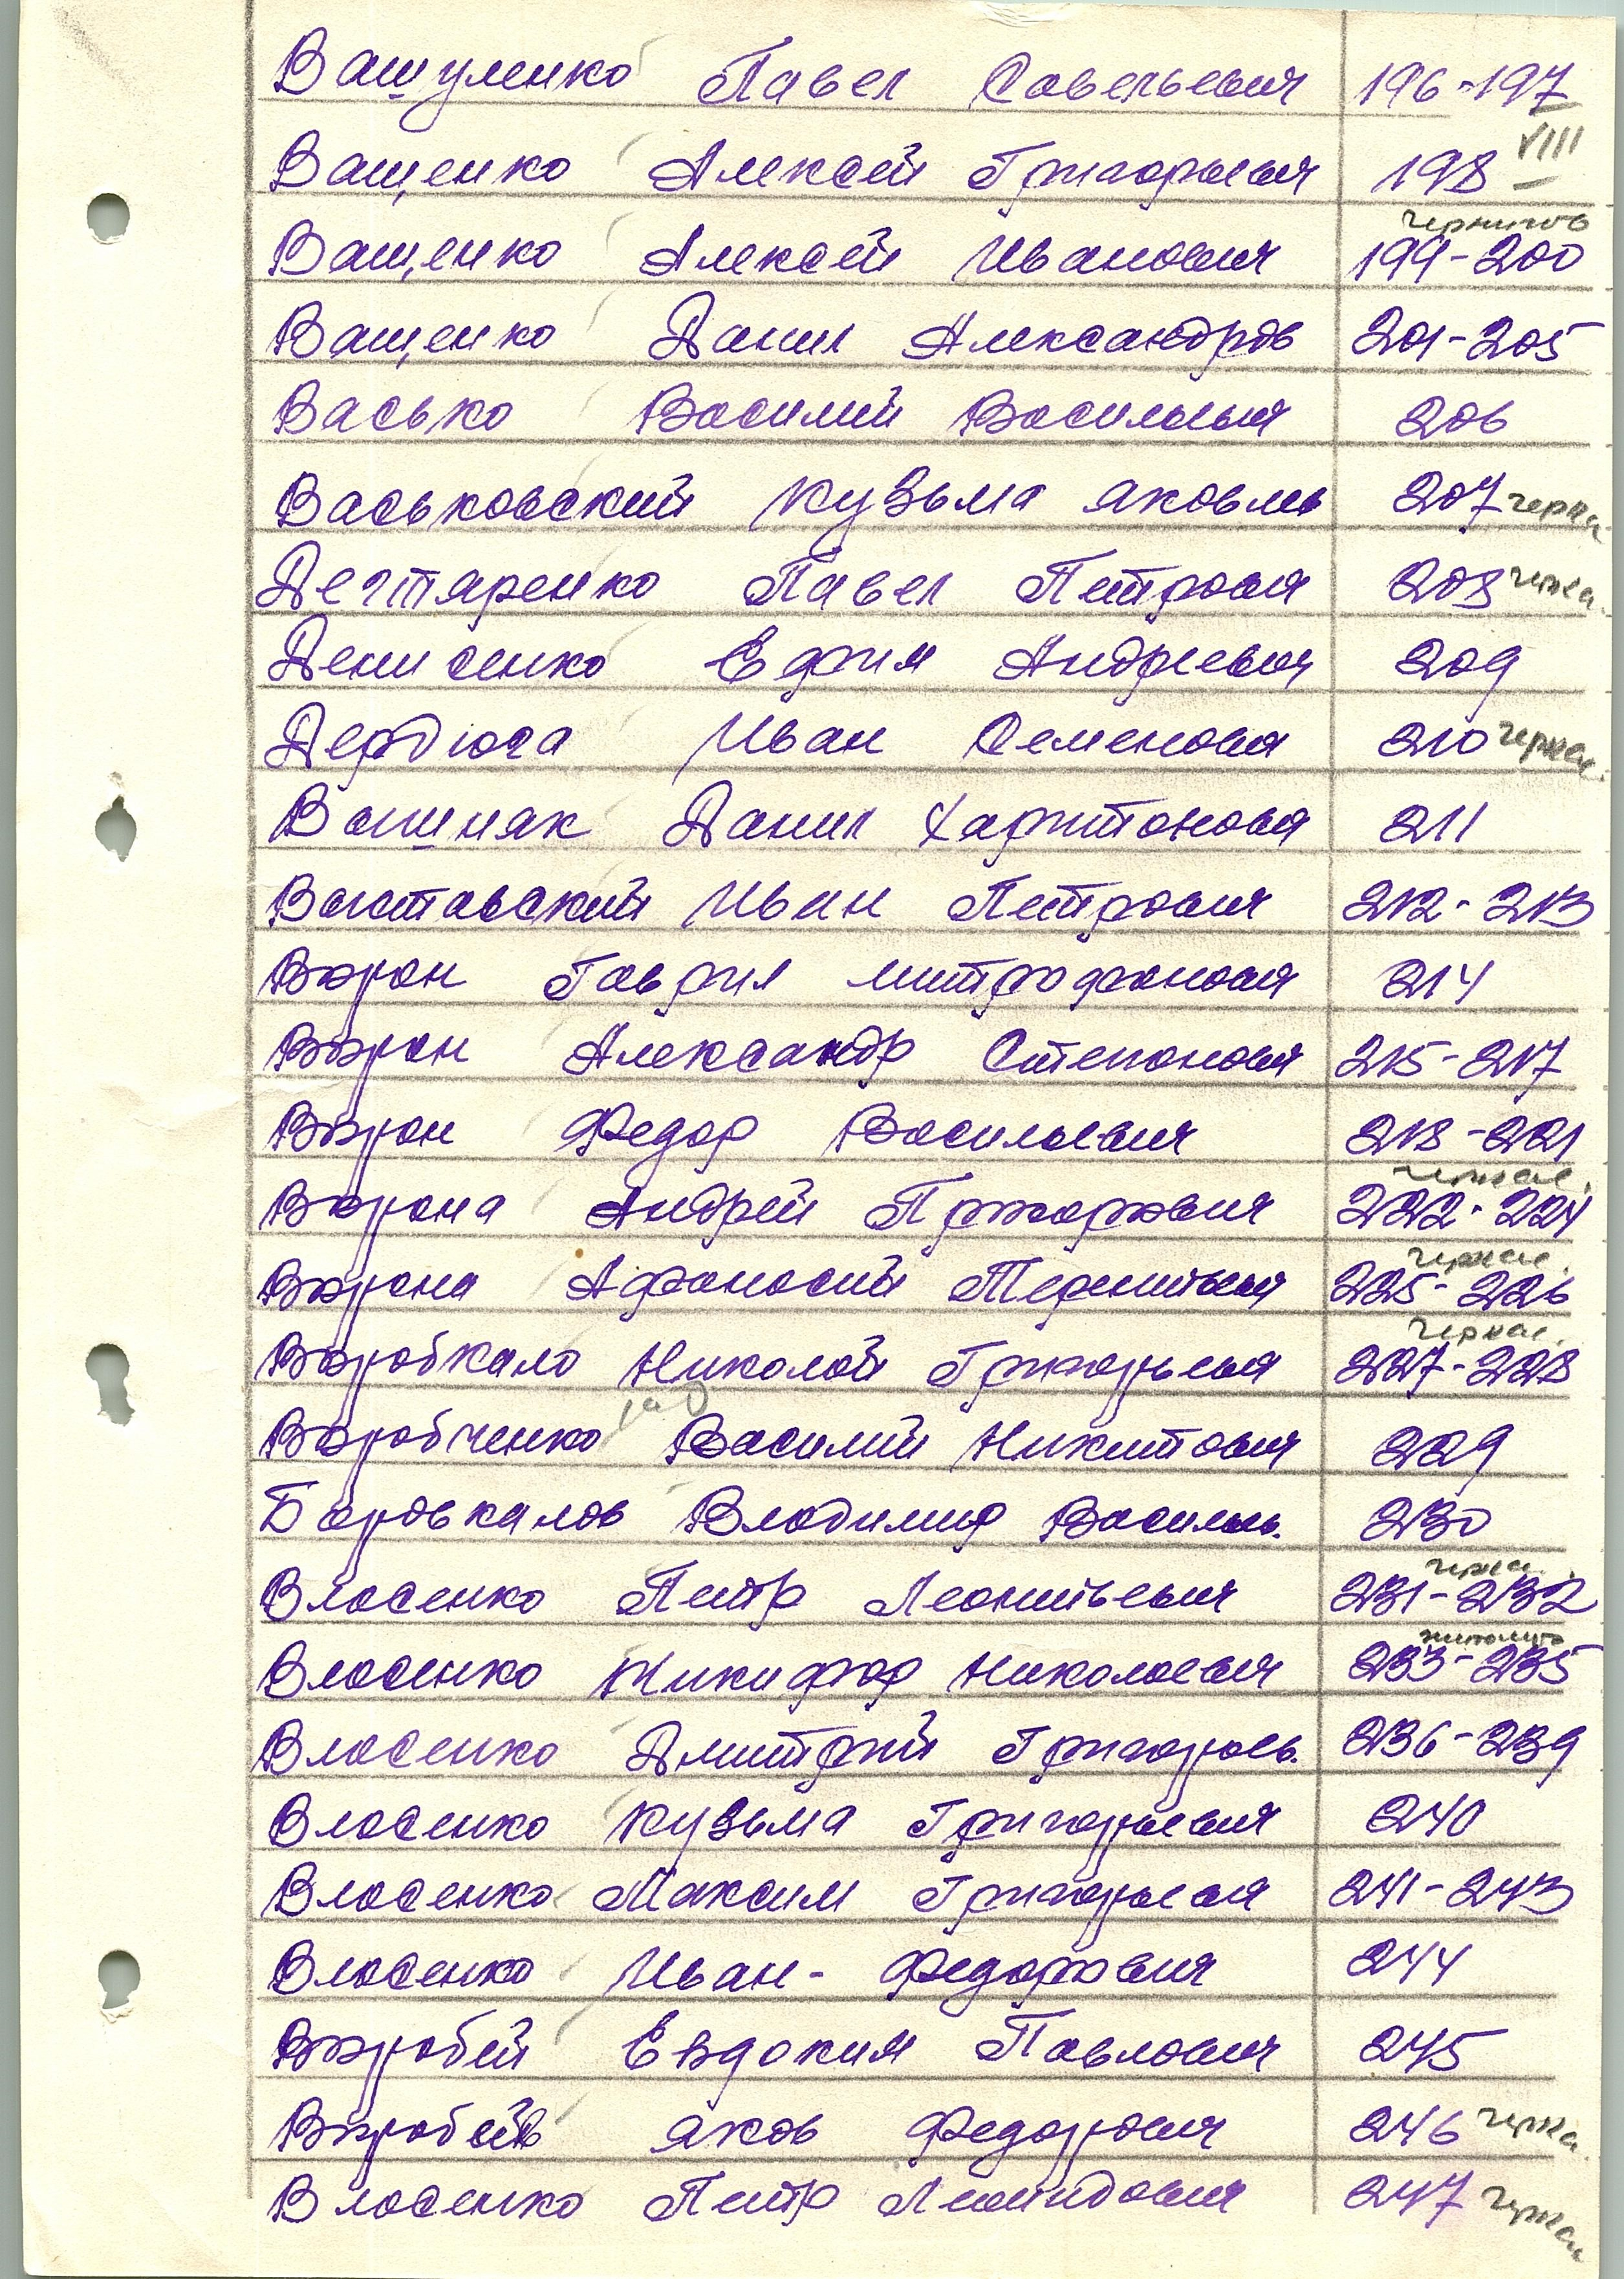 Вашуленко Павел Савельевич 196-197
VIII
Ващенко Алексей Григорьевич 198
чернигов
Ващенко Алексей Иванович 199-200
Ващенко Данил Александров 201-205
Васько Василий Васильевич 206
Васьковский Кузьма Яковль 207 черка
Дегтяренко Павел Петрович 208 черка.
Денисенко Ефрим Андреевич 209
Дердюга Иван Семенович 210 черкас.
Вашняк Данил Харитонович 211
Виктавский Иван Петрович 212-213
Ворон Гаврил Митрофанович 214
Ворон Александр Степанович 215-217
Ворон Федор Васильевич 218-221
черкас.
Ворона Андрей Григорович 222-224
черкас.
Ворона Афанасий Терентьевич 225-226
черкас.
Воробкало Николай Григорьевич 227-228
Воробченко Василий Никитович 229
Боровкалов Владимир Василь. 230
черка.
Власенко Петр Леонтьевич 231-232
житомир
Власенко Никифор Николаевич 233-235
Власенко Дмитрий Григорьев. 236-239
Власенко Кузьма Григорьевич 240
Власенко Максим Григорьевич 241-243
Власенко Иван- Федорович 244
Воробей Евдоким Павлович 245
Воробей Яков Федорович 246 черка.
Власенко Петр 247 черкас